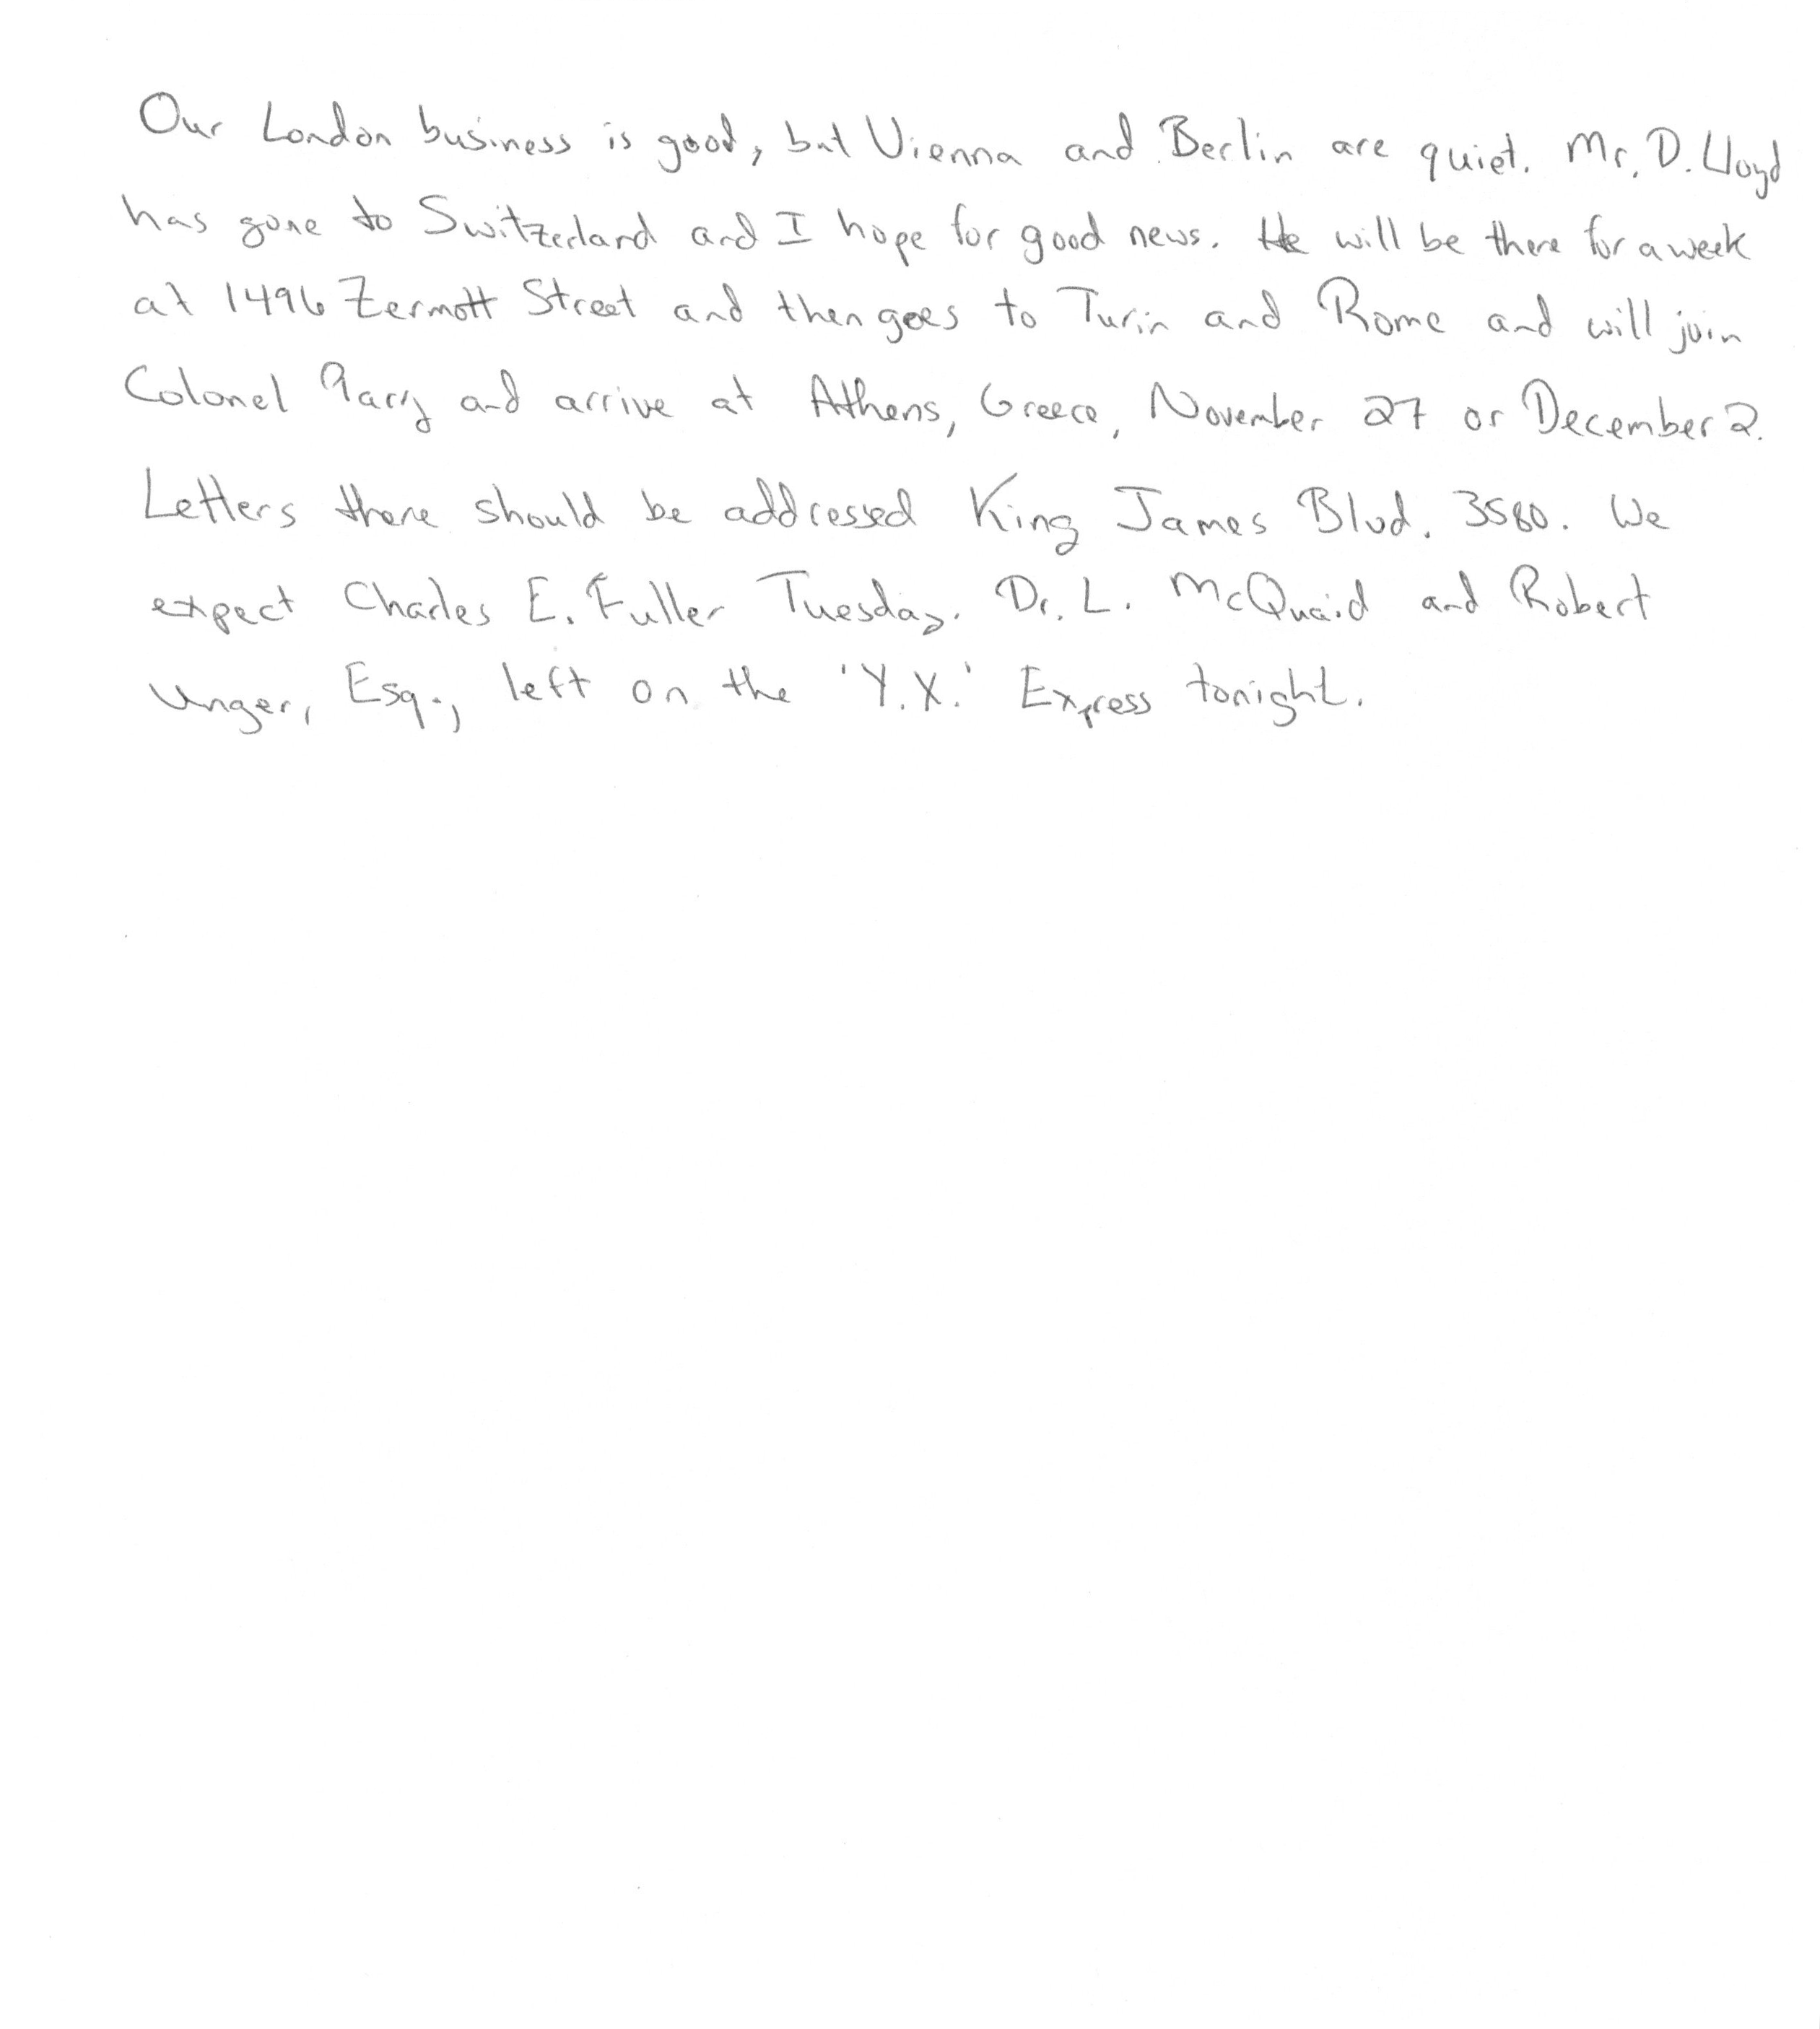 Our London business is good, but Vienna and Berlin are quiet. Mr. D. Lloyd
has gone to Switzerland and I hope for good news. He will be there for a week
at 1496 Zermott Street and then goes to Turin and Rome and will join
Colonel Parry and arrive at Athens, Greece, November 27 or December 2.
Letters there should be addressed King James Blvd. 3580. We
expect Charles E. Fuller Tuesday. Dr. L. McQuaid and Robert
Unger, Esq., left on the 'Y.X.' Express tonight.